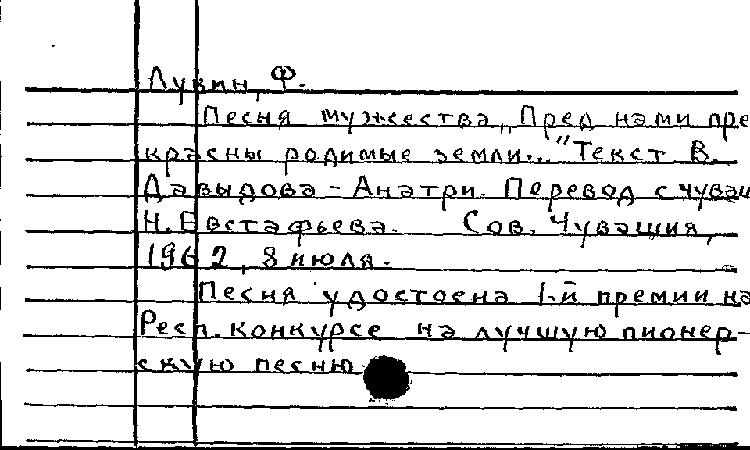 Лукин, Ф.
Песня мужества „Пред нами пре
красны родимые земли..." Текст В.
Давыдова-Анатри. Перевод с чуваш
Н. Евстафьева. Сов. Чувашия,
1962, 8 июля.
Песня удостоена 1-й премии на
Респ. конкурсе на лучшую пионер-
скую песню